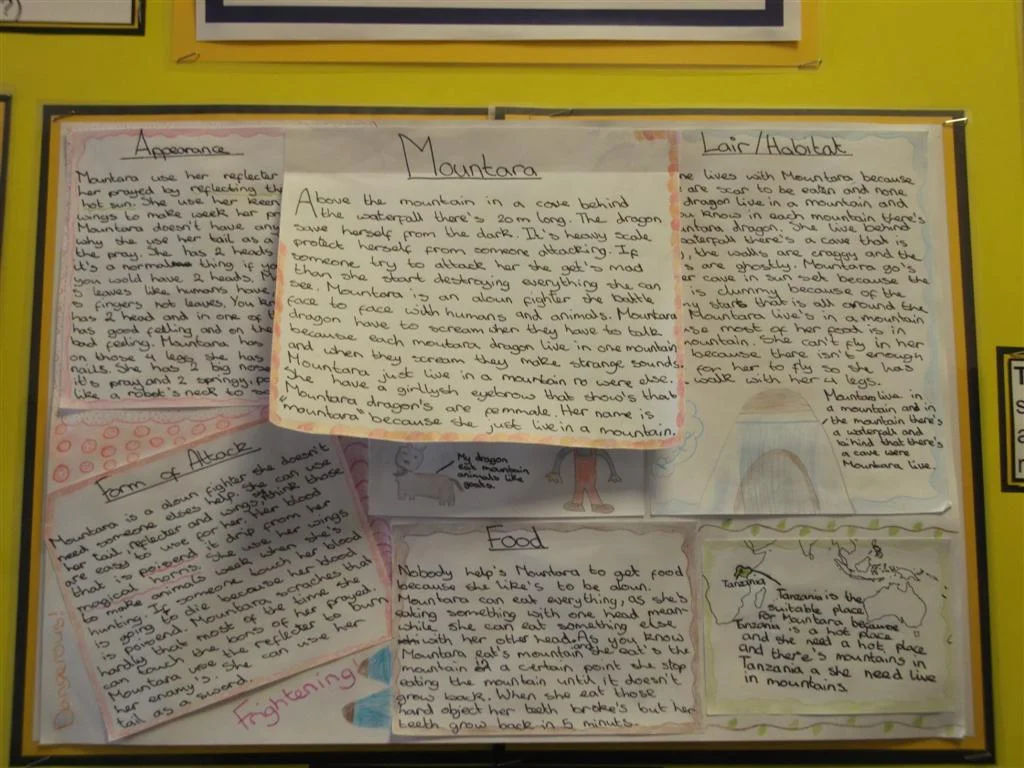 ?)
Appearance
Mountara use her reflecter
her prayed by reflecting th
hot sun. She use her keen
wings to make week her pr
Mountara doesn't have any
why she use her tail as a
the pray. She has 2 heads
it's a normal thing if yo
you wold have 2 heads. M
5 leaves like humans have
5 fingers not leaves. You kn
has 2 head and in one of t
has good felling and on the
bad felling. Mountara has
on those 4 legs she has
nails. She has 2 big nose
it's pray and 2 springy, po
like a robot's neck to
Mountara
Above the mountain in a cave behind
the waterfall there's 20m long. The dragon
save herself from the dark. It's heavy scale
protect herself from someone attacking. If
someone try to attack her she get's mad
than she start destroying everything she can
see. Mountara is an aloun fighter she battle
face to face with humans and animals. Mountara
dragon have to scream when they have to talk
because each moutara dragon live in one mountain
and when they scream they make strange sounds.
Mountara just live in a mountain no were else.
She have a girllysh eyebrow that show's that
Mountara dragon's are femmale. Her name is
"mountara" because she just live in a mountain.
Lair/Habitat
ne lives with Mountara because
are scar to be eaten and none
dragon live in a mountain and
u know in each mountain there's
untara dragon. She live behind
aterfall there's a cave that is
, the walls are craggy and the
s are ghostly. Mountara go's
er cave in sun set because the
is clummy because of the
ny starts that is all around the
Mountara live's in a mountain
use most of her food is in
ountain. She can't fly in her
because there isn't enough
for her to fly so she has
walk with her 4 legs.
Mountara live in
a mountain and in
the mountain there's
a waterfall and
behind that there's
a cave were
Mountara live.
Form of Attack
Mountara is a aloun fighter she doesn't
need someone elses help. She can use
her tail, reflecter and wings, think those
are easy to use for her. Her blood
that is poisend it drip from her
magical horns. She use her wings
to make animals week when she's
hunting. If someone touch her blood
is going to die because her blood
is poisend. Mountara scraches that
hardly that most of the time she
can touch the bons of her prayed.
Mountara use the reflecter to burn
her enamy's. She can use her
tail as a sword.
My dragon
eat mountain
animals like
goats.
Dangerious!
Frightening
Food
Nobody help's Mountara to get food
because she like's to be aloun.
Mountara can eat everything, as she's
eating something with one head mean-
while she can eat something else
with her other head. As you know
Mountara eat's mountain and she eat's the
mountain at a certain point she stop
eating the mountain until it doesn't
grow back. When she eat those
hard object her teeth broke's but her
teeth grow back in 5 minuts.
Tanzania
Tanzania is the
suitable place
for Mountara because
Tanzania is a hot place
and she need a hot place
and there's mountains in
Tanzania she need live
in mountains.